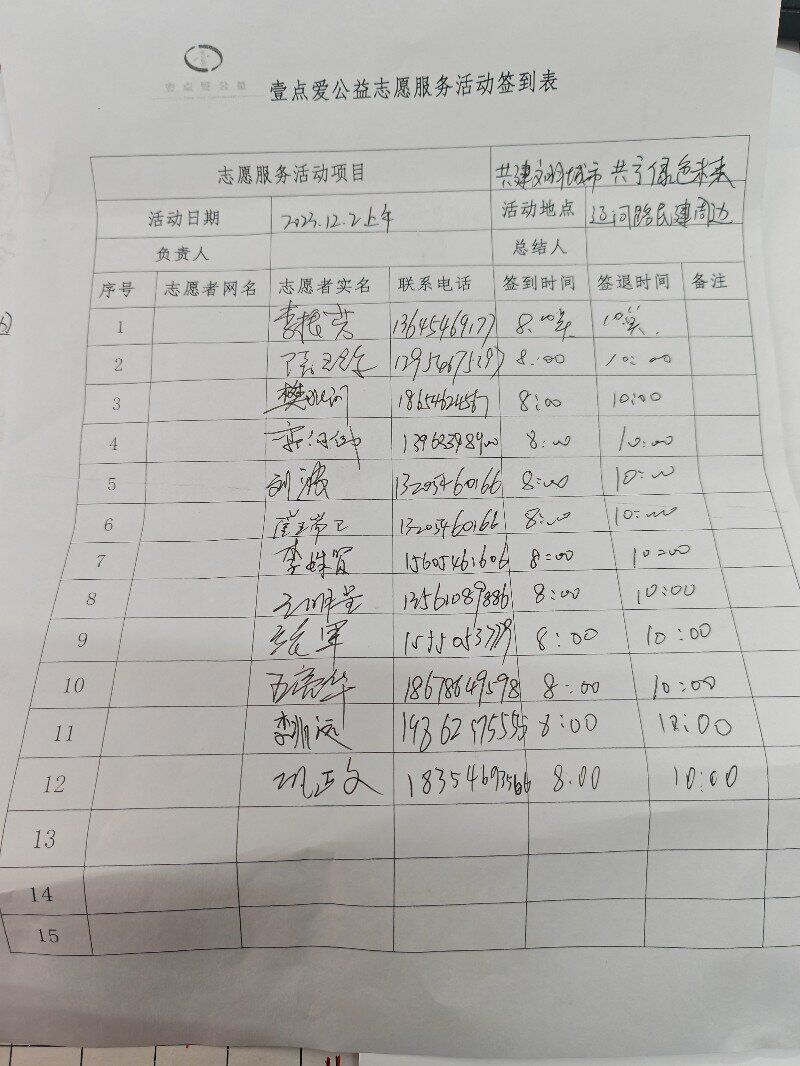 壹点爱公益
壹点爱公益志愿服务活动签到表
志愿服务活动项目 共建文明城市 共享绿色未来
活动日期 2023.12.2上午 活动地点 辽河路民建周边
负责人 总结人
序号 志愿者网名 志愿者实名 联系电话 签到时间 签退时间 备注
1 李振芳 13645469177 8.00 10.
2 8:00 10:00
3 樊 18654624567 8:00 10:00
4 8:00 10:00
5 刘波 13205460166 8:00 10:00
6 13205460166 8:00 10:00
7 李姝贤 15605461606 8:00 10:00
8 王明星 13561089886 8:00 10:00
9 张军 8:00 10:00
10 18678649598 8:00 10:00
11 李 8:00 10:00
12 巩正文 18354693566 8.00 10:00
13
14
15